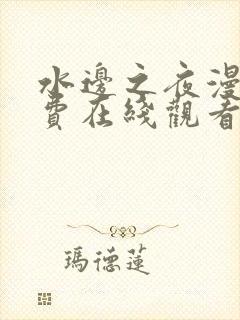 水邊之夜漫
費在綫觀看
瑪德蓮